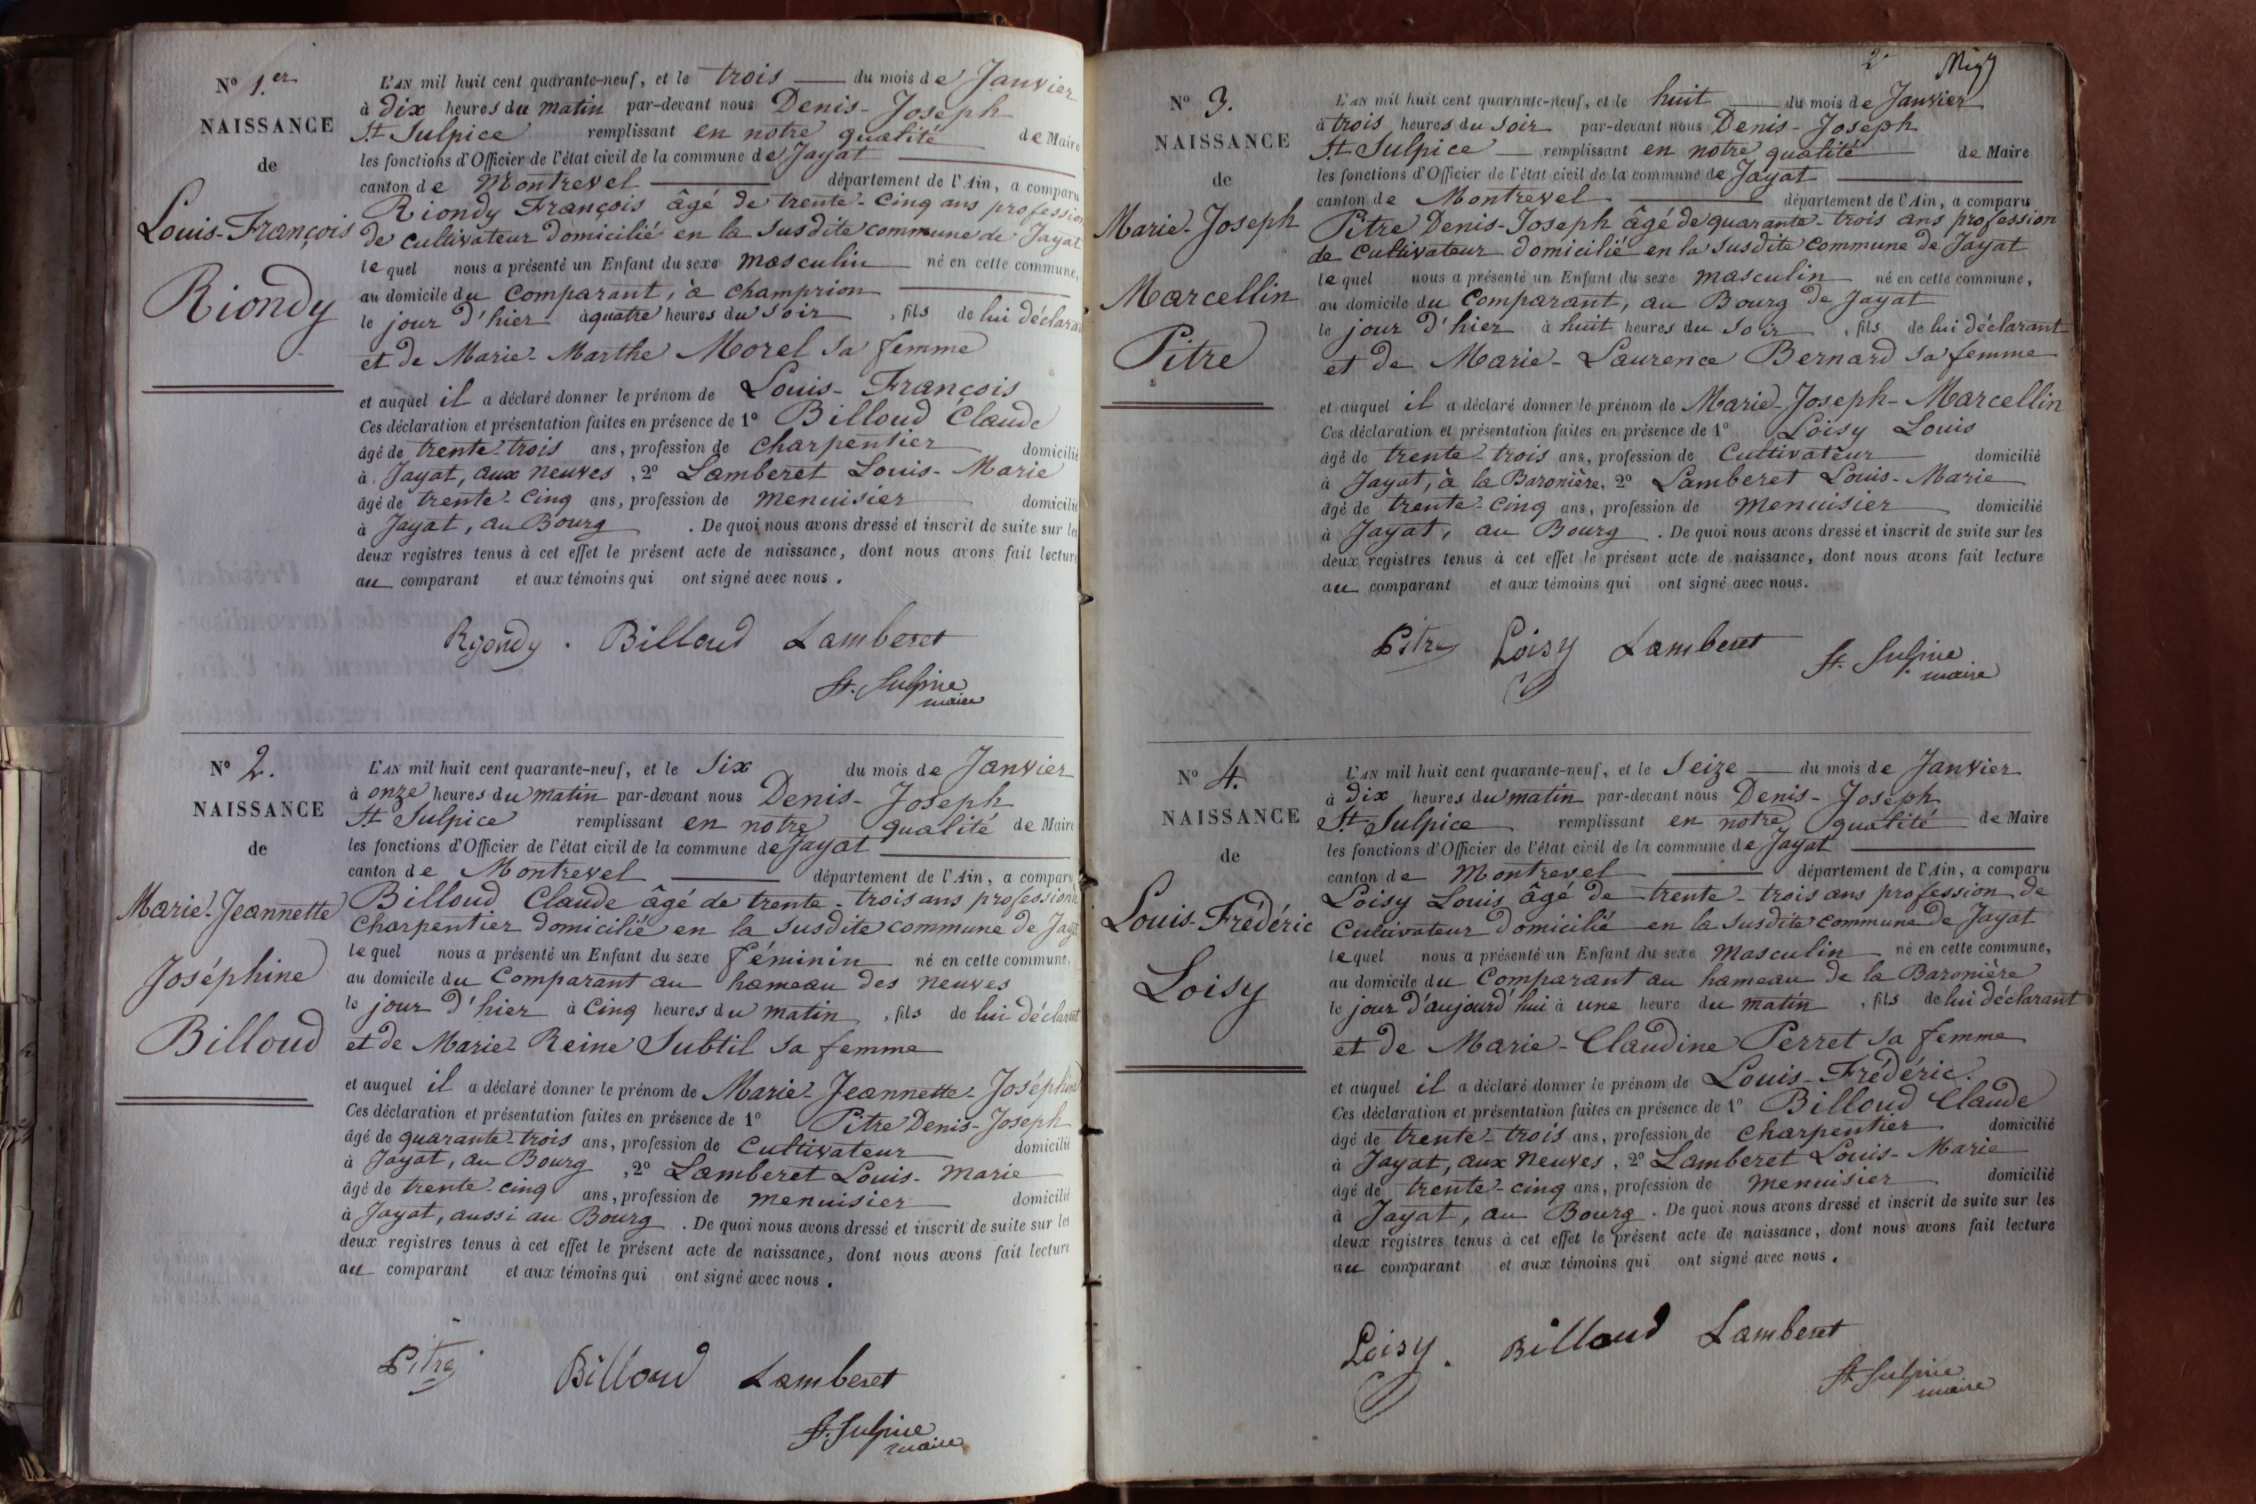 N° 1.er
NAISSANCE
de
Louis-François
Riondy
L'AN mil huit cent quarante-neuf, et le trois du mois de Janvier
à dix heures du matin par-devant nous Denis-Joseph
St Sulpice remplissant en notre qualité de Maire
les fonctions d'Officier de l'état civil de la commune de Jayat
canton de Montrevel département de l'Ain, a comparu
Riondy François âgé de trente-cinq ans profession
de cultivateur domicilié en la susdite commune de Jayat
lequel nous a présenté un Enfant du sexe masculin né en cette commune,
au domicile du comparant, à champrion
le jour d'hier à quatre heures du soir, fils de lui déclarant
et de Marie-Marthe Morel sa femme
et auquel il a déclaré donner le prénom de Louis-François
Ces déclaration et présentation faites en présence de 1° Billoud Claude
âgé de trente-trois ans, profession de charpentier domicilié
à Jayat, aux neuves, 2° Lamberet Louis-Marie
âgé de trente-cinq ans, profession de menuisier domicilié
à Jayat, au Bourg. De quoi nous avons dressé et inscrit de suite sur les
deux registres tenus à cet effet le présent acte de naissance, dont nous avons fait lecture
au comparant et aux témoins qui ont signé avec nous.
Ryondy. Billoud Lamberet
St. Sulpice
maire
N° 2.
NAISSANCE
de
Marie-Jeannette
Joséphine
Billoud
L'AN mil huit cent quarante-neuf, et le six du mois de Janvier
à onze heures du matin par-devant nous Denis-Joseph
St Sulpice remplissant en notre qualité de Maire
les fonctions d'Officier de l'état civil de la commune de Jayat
canton de Montrevel département de l'Ain, a comparu
Billoud Claude âgé de trente-trois ans profession
charpentier domicilié en la susdite commune de Jayat
lequel nous a présenté un Enfant du sexe féminin né en cette commune,
au domicile du comparant au hameau des neuves
le jour d'hier à cinq heures du matin, fils de lui déclarant
et de Marie-Reine Subtil sa femme
et auquel il a déclaré donner le prénom de Marie-Jeannette-Joséphine
Ces déclaration et présentation faites en présence de 1° Pitre Denis-Joseph
âgé de quarante-trois ans, profession de cultivateur domicilié
à Jayat, au Bourg, 2° Lamberet Louis-Marie
âgé de trente-cinq ans, profession de menuisier domicilié
à Jayat, aussi au Bourg. De quoi nous avons dressé et inscrit de suite sur les
deux registres tenus à cet effet le présent acte de naissance, dont nous avons fait lecture
au comparant et aux témoins qui ont signé avec nous.
Pitre Billoud Lamberet
St. Sulpice
maire
2.
N° 3.
NAISSANCE
de
Marie-Joseph
Marcellin
Pitre
L'AN mil huit cent quarante-neuf, et le huit du mois de Janvier
à trois heures du soir par-devant nous Denis-Joseph
St Sulpice remplissant en notre qualité de Maire
les fonctions d'Officier de l'état civil de la commune de Jayat
canton de Montrevel département de l'Ain, a comparu
Pitre Denis-Joseph âgé de quarante-trois ans profession
de cultivateur domicilié en la susdite commune de Jayat
lequel nous a présenté un Enfant du sexe masculin né en cette commune,
au domicile du comparant, au Bourg de Jayat
le jour d'hier à huit heures du soir, fils de lui déclarant
et de Marie-Laurence Bernard sa femme
et auquel il a déclaré donner le prénom de Marie-Joseph-Marcellin
Ces déclaration et présentation faites en présence de 1° Loisy Louis
âgé de trente-trois ans, profession de cultivateur domicilié
à Jayat, à la Baronière, 2° Lamberet Louis-Marie
âgé de trente-cinq ans, profession de menuisier domicilié
à Jayat, au Bourg. De quoi nous avons dressé et inscrit de suite sur les
deux registres tenus à cet effet le présent acte de naissance, dont nous avons fait lecture
au comparant et aux témoins qui ont signé avec nous.
Pitre Loisy Lamberet St. Sulpice
maire
N° 4.
NAISSANCE
de
Louis-Frédéric
Loisy
L'AN mil huit cent quarante-neuf, et le seize du mois de Janvier
à dix heures du matin par-devant nous Denis-Joseph
St Sulpice remplissant en notre qualité de Maire
les fonctions d'Officier de l'état civil de la commune de Jayat
canton de Montrevel département de l'Ain, a comparu
Loisy Louis âgé de trente-trois ans profession de
cultivateur domicilié en la susdite commune de Jayat
lequel nous a présenté un Enfant du sexe masculin né en cette commune,
au domicile du comparant au hameau de la Baronière
le jour d'aujourd'hui à une heure du matin, fils de lui déclarant
et de Marie-Claudine Perret sa femme
et auquel il a déclaré donner le prénom de Louis-Frédéric.
Ces déclaration et présentation faites en présence de 1° Billoud Claude
âgé de trente-trois ans, profession de charpentier domicilié
à Jayat, aux neuves, 2° Lamberet Louis-Marie
âgé de trente-cinq ans, profession de menuisier domicilié
à Jayat, au Bourg. De quoi nous avons dressé et inscrit de suite sur les
deux registres tenus à cet effet le présent acte de naissance, dont nous avons fait lecture
au comparant et aux témoins qui ont signé avec nous.
Loisy. Billoud Lamberet
St Sulpice
maire